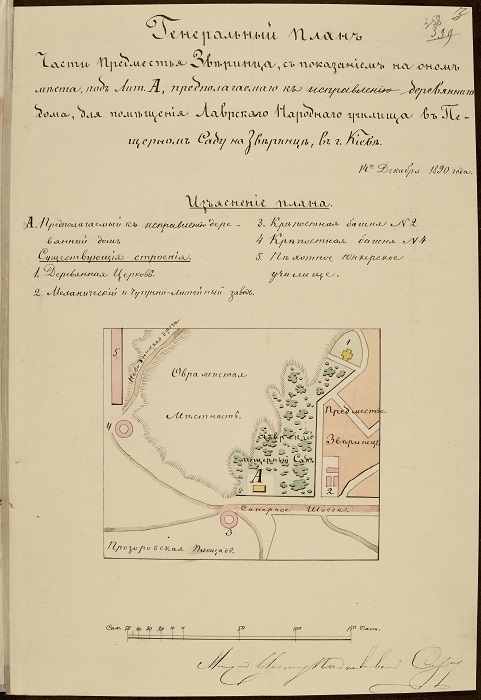 339
Генеральный Планъ
Части Предместья Звѣринца, съ показаніемъ на ономъ
мѣста, подъ Лит. А, предполагаемаго къ исправленію деревяннаго
дома, для помѣщенія Лаврскаго Народнаго училища въ Пе-
щерномъ Саду на Звѣринцѣ, въ г. Кіевѣ.
14го Декабря 1890 года.
Изъясненіе плана.
А. Предполагаемый къ исправленію дере-
ванный домъ
Существующія строенія.
1. Деревянная Церковь
2. Механическій и Чугунно-литейный завод.
3. Крѣпостная башня №2
4 Крѣпостная башня №4
5 Пѣхотное Юнкерское
училище.
5
дорога
1
Овражистая
Мѣстность.
Предместье
Звѣринецъ
4
Лаврскій
пещерной Садъ
А
2
Саперное Шоссе.
3
Прозоровская Площадь.
Саж. 50 40 30 20 10 0 50 100 150 Саж.